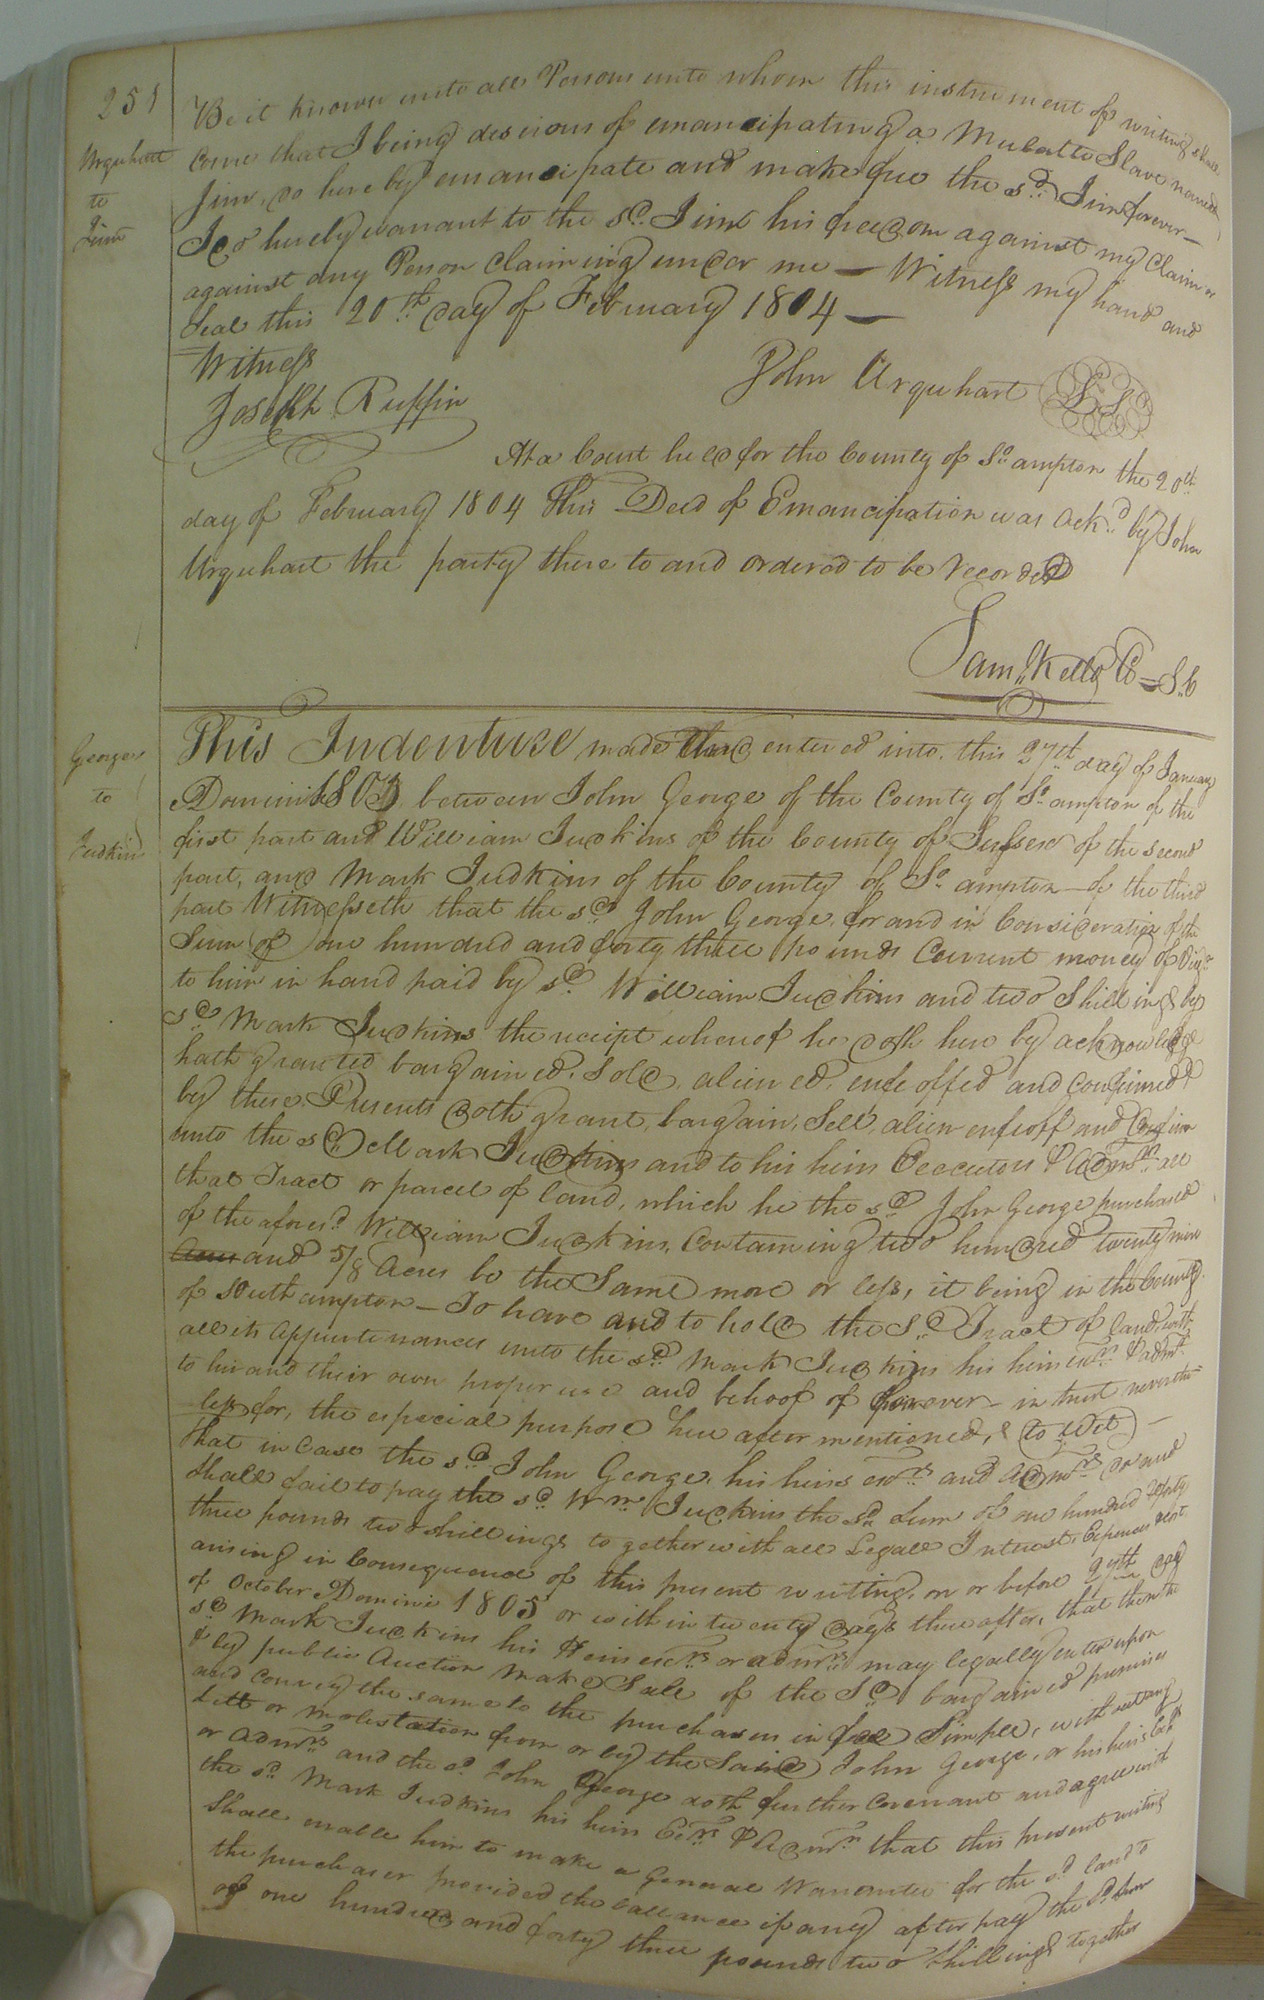 251
Urquhart
to
Jim
Be it known unto all Persons unto whom this instrument of writing shall
Come that I being desirous of emancipating a Mulatto Slave named
Jim, do hereby emancipate and make free the sd. Jim forever—
I do hereby warrant to the sd. Jim his freedom against my Claim or
against any Person Claiming under me — Witness my hand and
Seal this 20th day of February 1804 —
Witness
John Urquhart L.S.
Joseph Ruffin
At a Court held for the County of So.ampton the 20th
day of February 1804 This Deed of Emancipation was ackd. by John
Urquhart the party there to and ordered to be recorded
Saml. Kello Co— S.C
George
to
Judkins
This Indenture made and entered into this 27th day of January
Domini 1803 between John George of the County of So.ampton of the
first part and William Judkins of the County of Sussex of the second
part, and Mark Judkins of the County of So.ampton — of the third
part Witnesseth that the sd. John George, for and in Consideration of the
Sum of one hundred and forty three pounds Current money of Virga.
to him in hand paid by sd. William Judkins and two Shillings by
sd. Mark Judkins the receipt whereof he doth here by acknowledge
hath granted bargained, Sold, aliened, enfeoffed and Confirmed &
by these Presents doth grant, bargain, Sell, alien enfeoff and Confirm
unto the sd. Mark Judkins and to his heirs Executors & Admrs. all
that Tract or parcel of land, which he the sd. John George purchased
of the aforesd. William Judkins, Containing two hundred twenty nine
and 5/8 Acres be the Same more or less, it being in the County
of Southampton — To have and to hold the Sd. Tract of land with
all its Appurtenances unto the sd. Mark Judkins his heirs exrs. & admrs.
to his and their own proper use and behoof of forever — in trust neverthe-
less for, the especial purpose here after mentioned, (to Wit) —
that in Case the sd. John George, his heirs exrs. and Admrs. do and
Shall fail to pay the sd. Wm. Judkins the Sd. Sum of one hundred & forty
three pounds two shillings to gether with all Legall Interest, Expences & Cost
arising in Consequence of this present writing, on or before 27th day
of October Domini 1805 or with in twenty days there after, that then the
sd. Mark Judkins his Heirs exrs. or admrs. may legally enter upon
& by public Auction Make Sale of the Sd. bargained premises
and Convey the same to the purchasers in fee Simple, with out any
Lett or molestation from or by the Said John George, or his heirs
or Admrs. and the sd. John George doth further Covenant and agree with
the sd. Mark Judkins his heirs Exrs. & Admrs. that this present writing
Shall enable him to make a General Warrantee for the sd. land to
the purchaser provided the ballance if any after pay the sd. Sum
of one hundred and forty three pounds two Shillings together